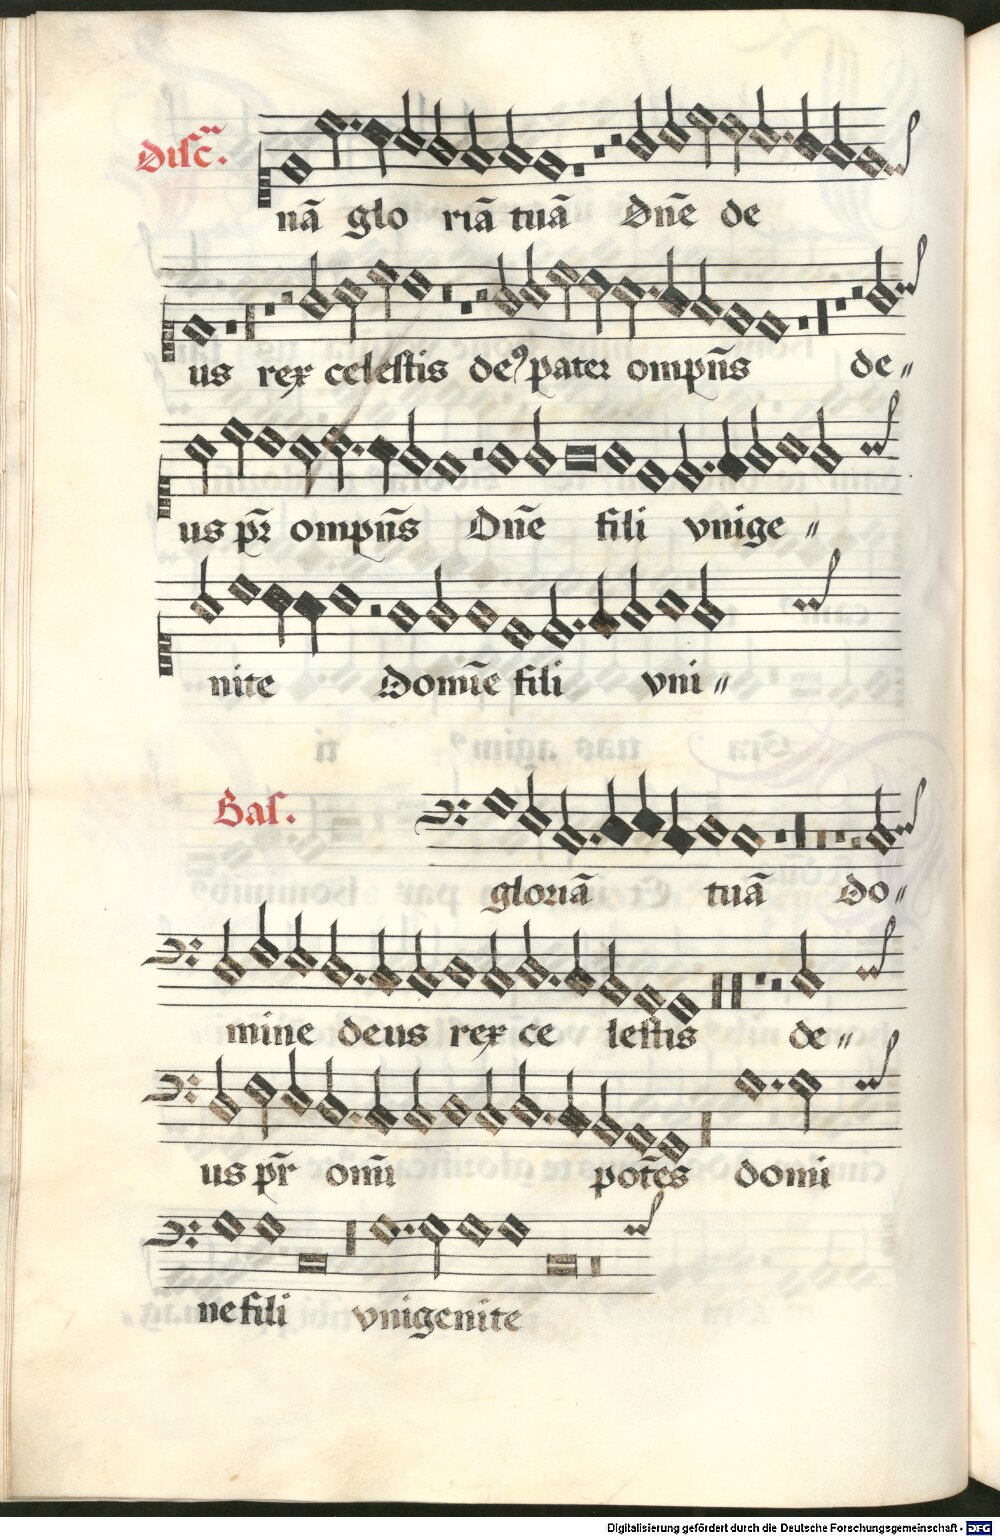 Disc̄.
nā glo riā tuā Dn̄e de
us rex celestis deꝰ pater omp̄ns de〃
us pr̄ omp̄ns Dn̄e fili vnige〃
nite Domīe fili vni〃
Bas.
gloriā tuā Do〃
mine deus rex ce lestis de〃
us pr̄ omī potēs domi
ne fili vnigenite
Digitalisierung gefördert durch die Deutsche Forschungsgemeinschaft - DFG